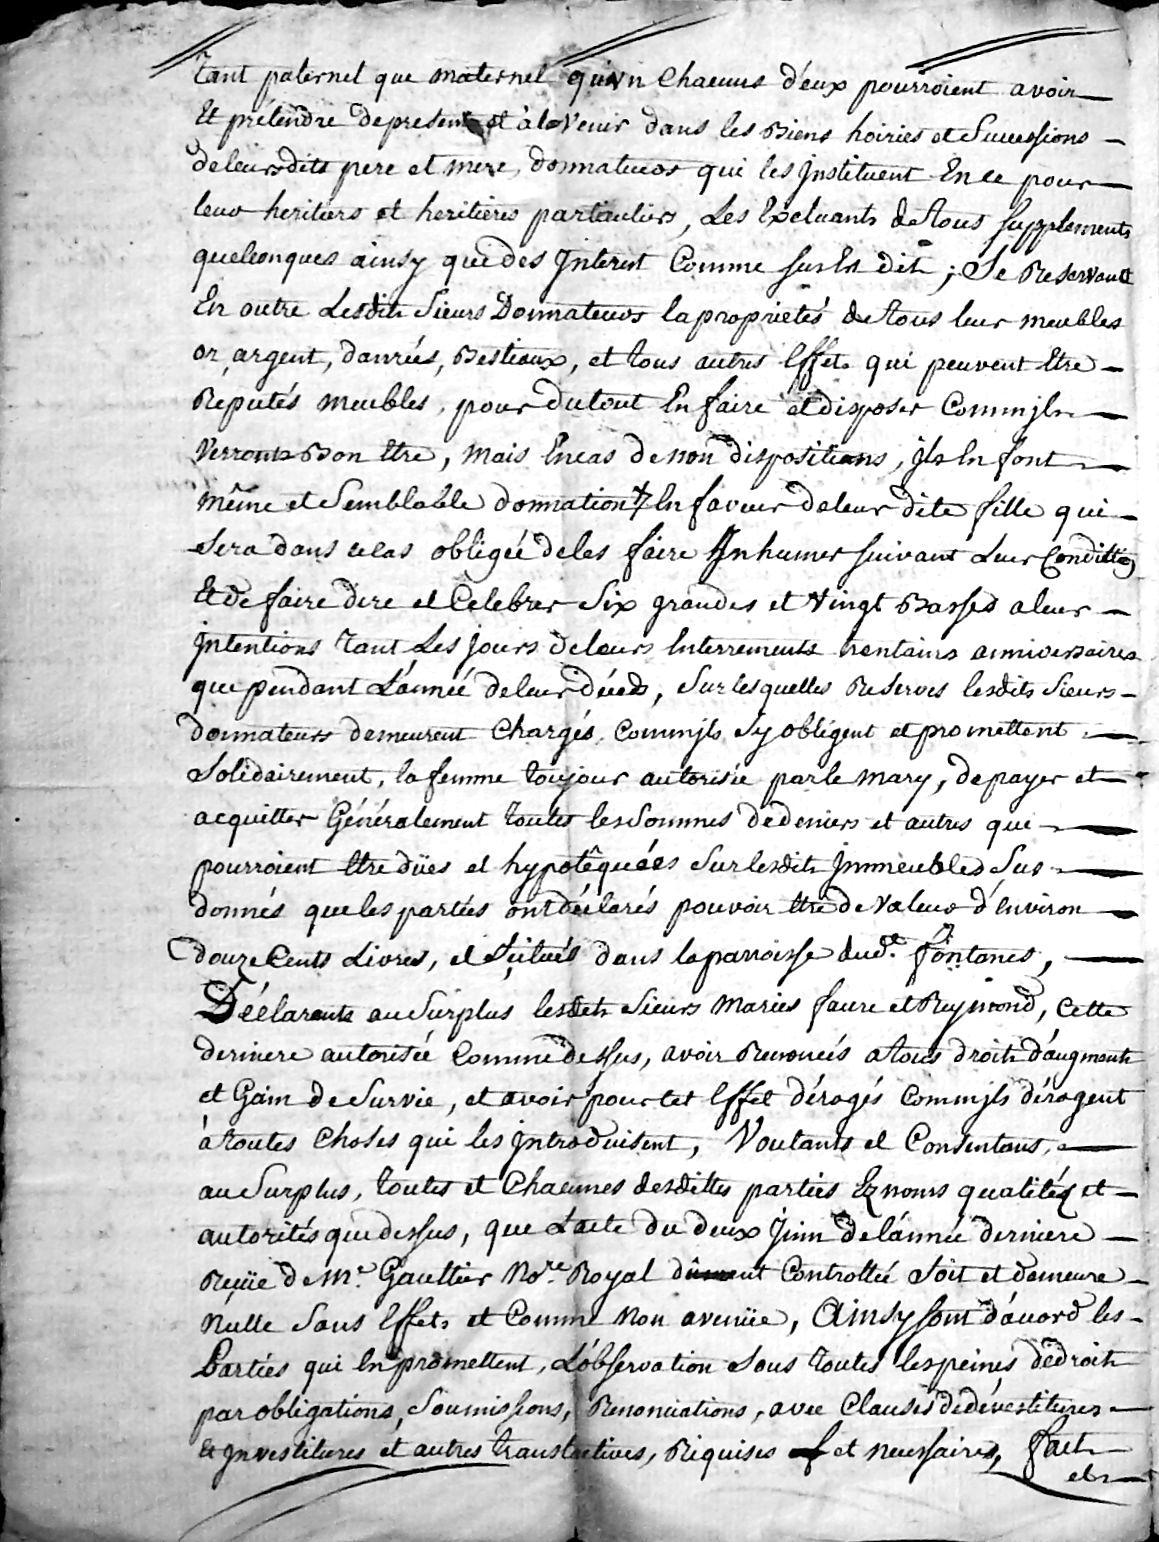 tant paternel que maternel qu'un chacuns d'eux pourroient avoir
Et prétendre depresent et àlavenir dans les Biens hoiries et Successions
deleursdits pere et mere, donnateurs qui les Jnstituent En ce pour
leurs heritiers et heritières particuliers, Les Excluants detous supplements
quelconques ainsy que des Jnterest Comme sus Est dit ; Se Reservants
En outre Lesdits Sieurs Donnateurs lapropriétés detous leur meubles
or, argent, danrées, Bestiaux, et tous autres Effets qui peuvent Etre
Reputés meubles, pour dutout En faire et disposer Commjls
Verronts Bon Etre, Mais Encas denon dispositions, jls En font
même et Semblable donnation En faveur deleur dite fille qui
Sera dans cecas obligée deles faire Jnhumer suivant Leur Condition
Et de faire dire et Celebrer Six grandes et Vingt Basses aleur
Jntentions tant Les jours deleurs Enterrements trentains anniversaires
que pendant L'année deleur décès, Surlesquelles Reserves lesdits Sieurs
donnateurs demeurent Chargés Commjls Sy obligent et promettent
Solidairement, la femme toujour autorisée parle mary, depayer et
acquitter Généralement toutes les Sommes dedeniers et autres qui
pourroient Etre dües et hypotêquées Surlesdits Jmmeubles Sus
donnés queles parties ont déclarés pouvoir Etre de Valeur d'Environ
douze Cents Livres, et Scitués dans laparroisse dud.t fontanes,
Déclarants au Surplus lesdits Sieurs Mariés faure et Reymond, Cette
derniere autorisée Comme dessus, avoir Renoncés atous droits d'augments
et Gain de Survie, et avoir pour cet Effet dérogés Commjls dérogent
à toutes Choses qui les jntroduisent, Voulants et Consentans,
au Surplus, toutes et Chacunes desdittes parties Ez noms qualitéz et
autorités que dessus, que L'acte du deux Juin del'année derniere
Reçüe de M.e Gaultier No.re Royal dûment Controllée Soit et demeure
Nulle Sans Effets et Comme Non avenüe, Ainsy sont d'accord les
Parties qui En promettent, L'observation Sous toutes les peines dedroits
par obligations, Soumissions, Renonciations, avec Clauses dedévestitures
Et Jnvestitures et autres translatives, Réquises et necessaires, fait
et